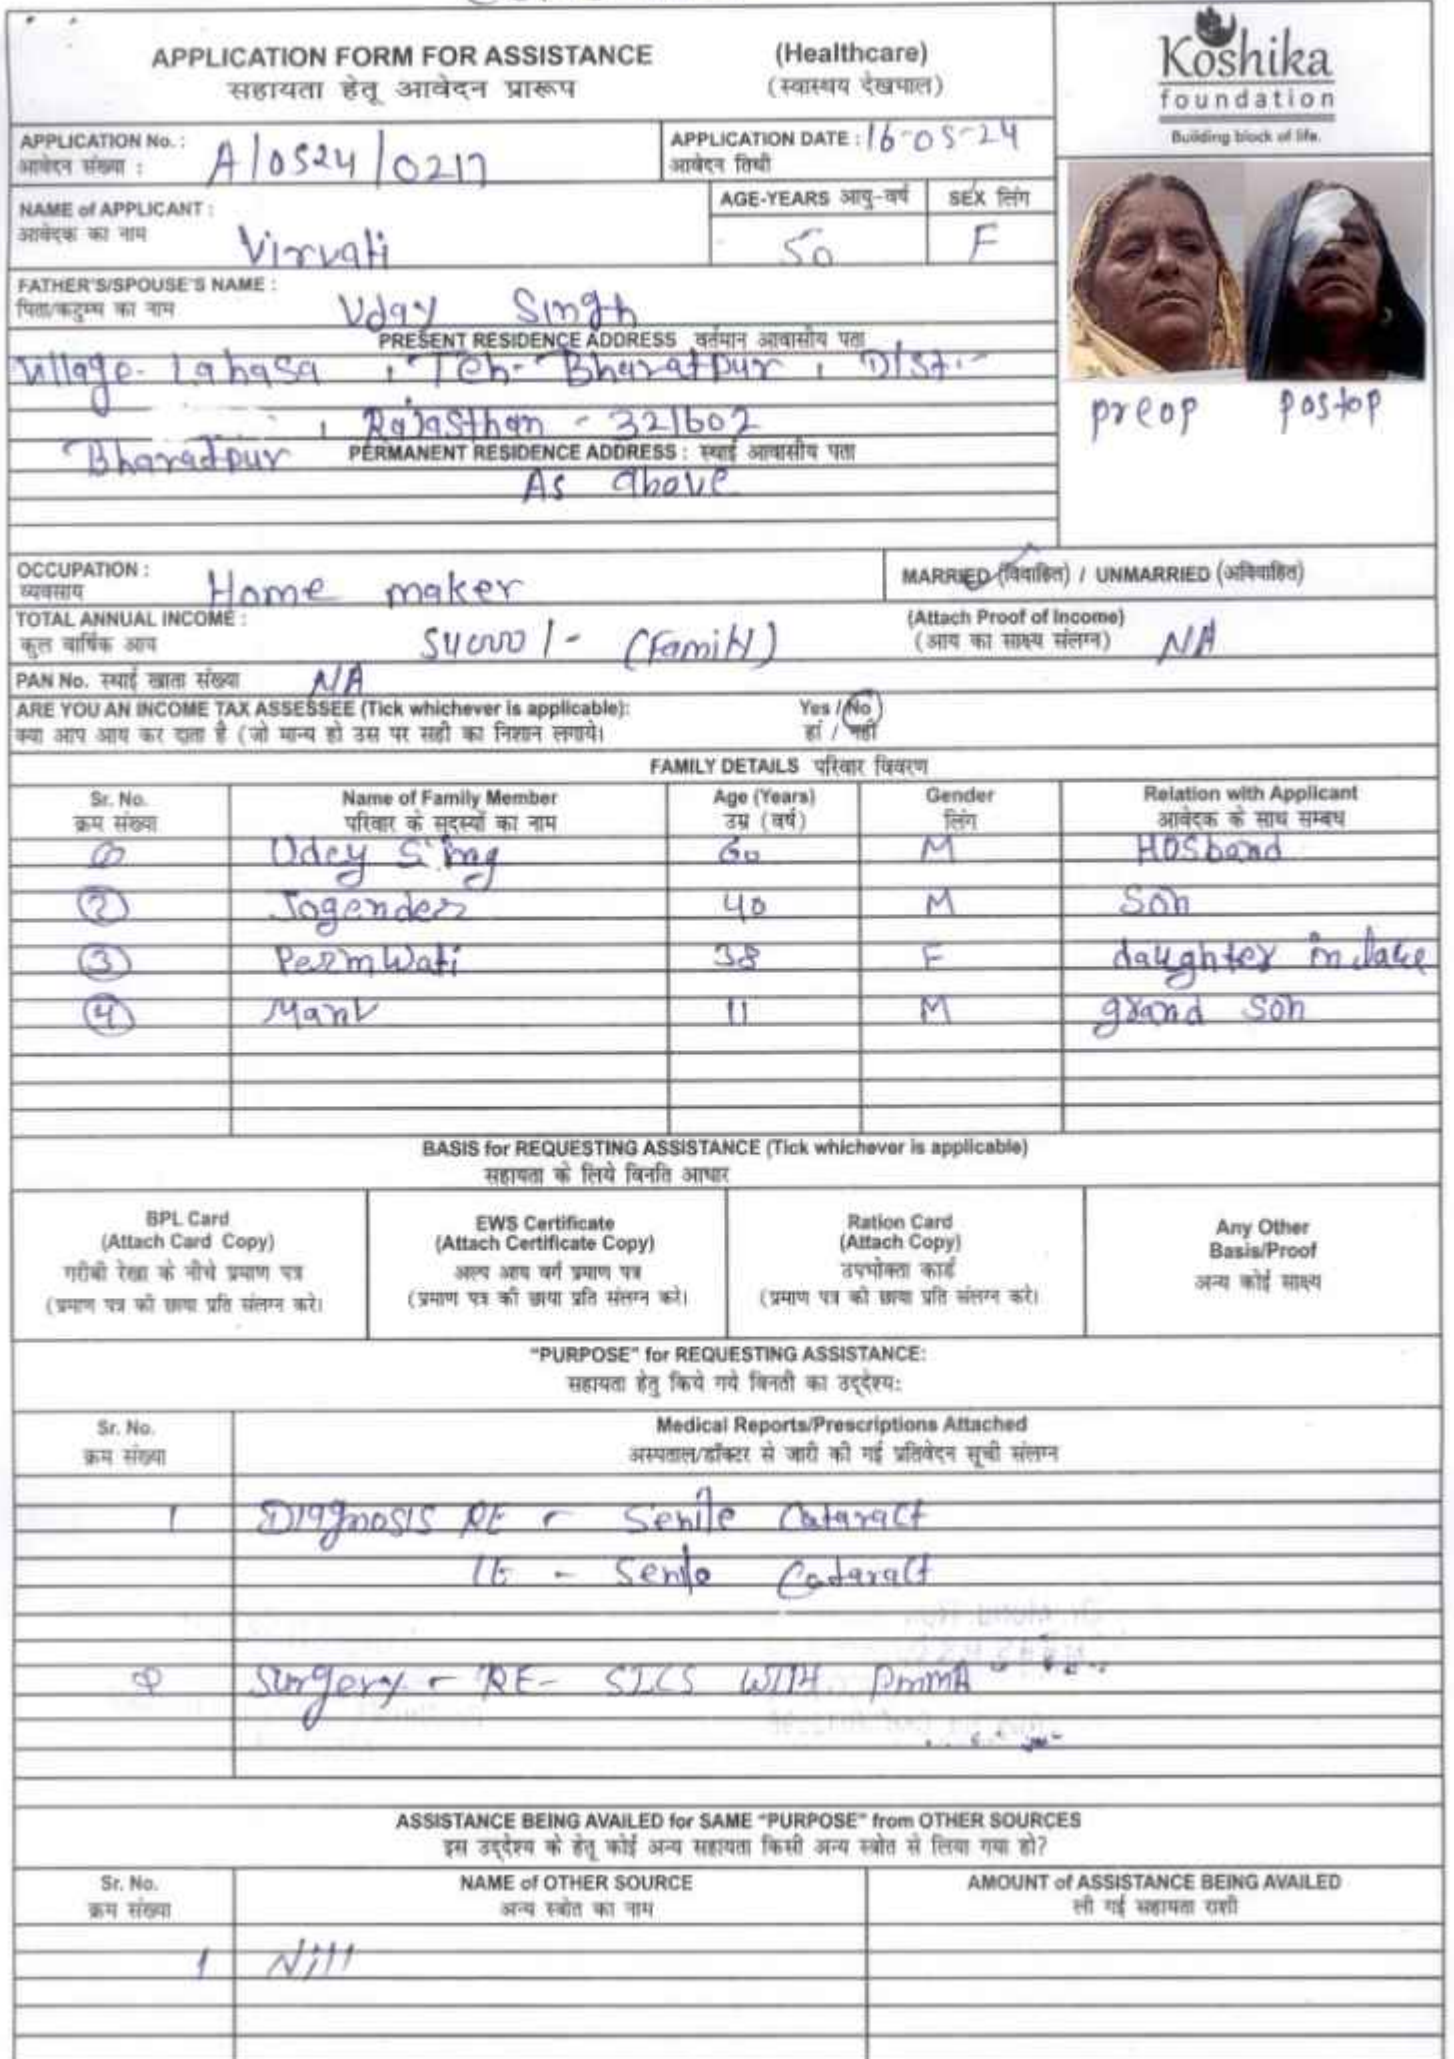 APPLICATION FORM FOR ASSISTANCE (Healthcare)
सहायता हेतू आवेदन प्रारूप (स्वास्थय देखभाल)
Koshika
foundation
Building block of life.
APPLICATION No. : A/0524/0217 APPLICATION DATE : 16-05-24
आवेदन संख्या : आवेदन तिथी
NAME of APPLICANT : AGE-YEARS आयु-वर्ष SEX लिंग
आवेदक का नाम Virvati 50 F
FATHER'S/SPOUSE'S NAME :
पिता/कटुम्ब का नाम Uday Singh
PRESENT RESIDENCE ADDRESS वर्तमान आवासीय पता
Village- Lahasa , Teh- Bharatpur , Dist.-
, Rajasthan - 321602
Bharatpur
preop postop
PERMANENT RESIDENCE ADDRESS : स्थाई आवासीय पता
As above
OCCUPATION : MARRIED (विवाहित) / UNMARRIED (अविवाहित)
व्यवसाय Home maker
TOTAL ANNUAL INCOME : (Attach Proof of Income)
कुल वार्षिक आय 54000/- (Family) (आय का साक्ष्य संलग्न) NA
PAN No. स्थाई खाता संख्या NA
ARE YOU AN INCOME TAX ASSESSEE (Tick whichever is applicable): Yes / No
क्या आप आय कर दाता है (जो मान्य हो उस पर सही का निशान लगाये। हां / नहीं
FAMILY DETAILS परिवार विवरण
Sr. No. Name of Family Member Age (Years) Gender Relation with Applicant
क्रम संख्या परिवार के सदस्यों का नाम उम्र (वर्ष) लिंग आवेदक के साथ सम्बध
Udey Sing 60 M Hosband
2 Jogender 40 M Son
3 Permwati 38 F daughter in
4 Manv 11 M grand son
BASIS for REQUESTING ASSISTANCE (Tick whichever is applicable)
सहायता के लिये विनति आधार
BPL Card
(Attach Card Copy)
गरीबी रेखा के नीचे प्रमाण पत्र
(प्रमाण पत्र की छाया प्रति संलग्न करे।
EWS Certificate
(Attach Certificate Copy)
अल्प आय वर्ग प्रमाण पत्र
(प्रमाण पत्र की छाया प्रति संलग्न करे।
Ration Card
(Attach Copy)
उपभोक्ता कार्ड
(प्रमाण पत्र की छाया प्रति संलग्न करे।
Any Other
Basis/Proof
अन्य कोई साक्ष्य
"PURPOSE" for REQUESTING ASSISTANCE:
सहायता हेतु किये गये विनती का उद्देश्य:
Sr. No. Medical Reports/Prescriptions Attached
क्रम संख्या अस्पताल/डॉक्टर से जारी की गई प्रतिवेदन सूची संलग्न
1 Diagnosis RE - Senile Cataract
LE - Senile Cataract
2 Surgery - RE- SICS WITH PMMA
ASSISTANCE BEING AVAILED for SAME "PURPOSE" from OTHER SOURCES
इस उद्देश्य के हेतू कोई अन्य सहायता किसी अन्य स्त्रोत से लिया गया हो?
Sr. No. NAME of OTHER SOURCE AMOUNT of ASSISTANCE BEING AVAILED
क्रम संख्या अन्य स्त्रोत का नाम ली गई सहायता राशी
1 Nill